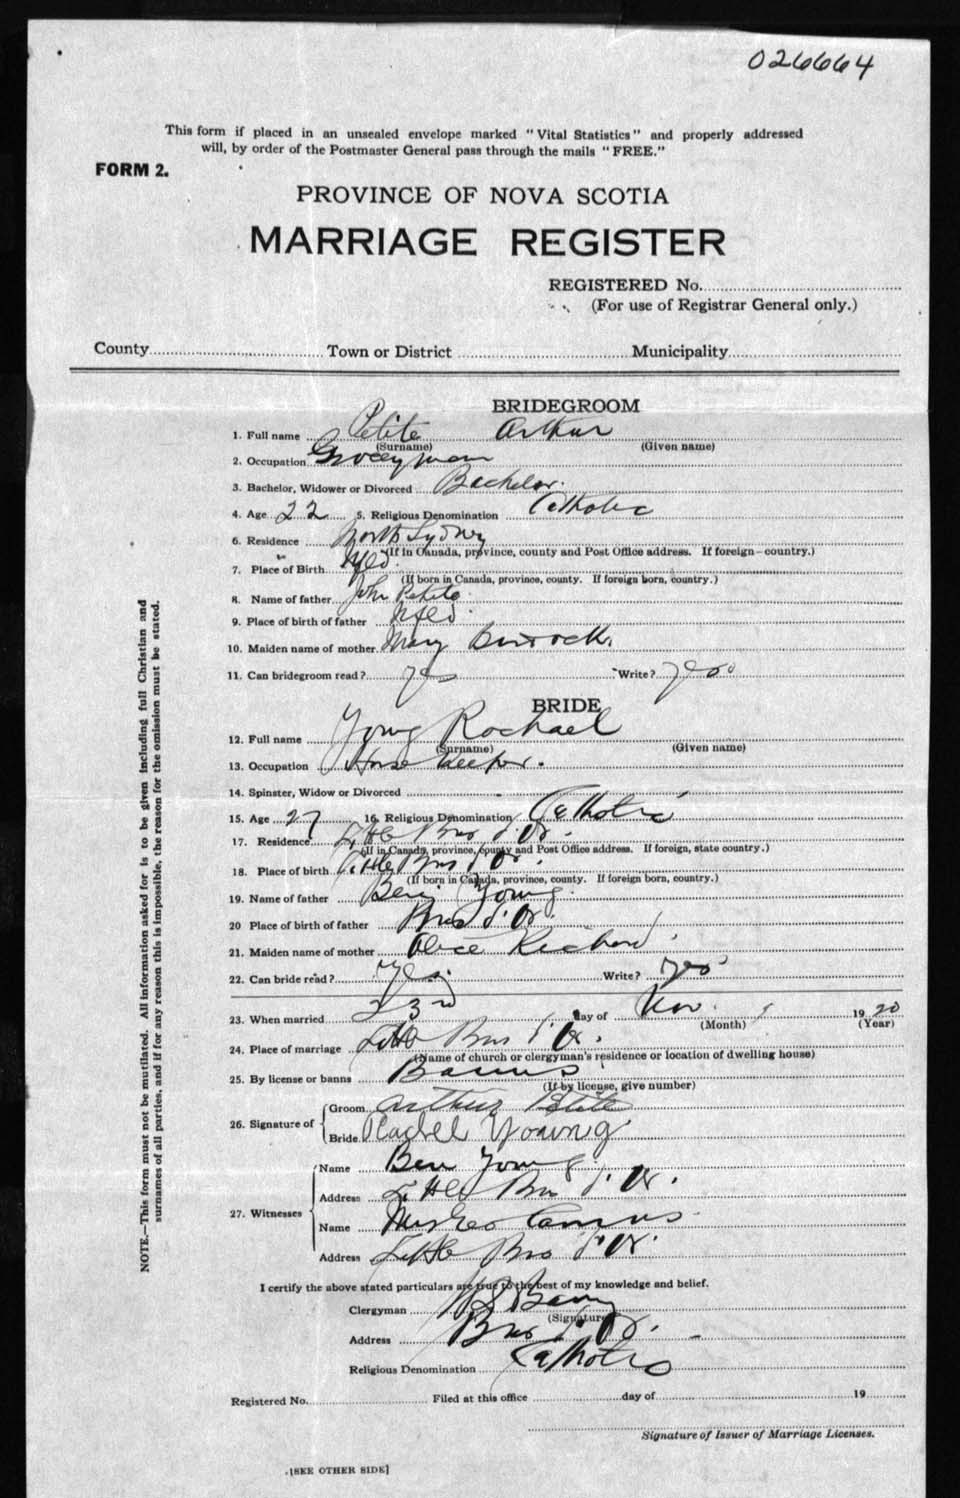 026664
This form if placed in an unsealed envelope marked "Vital Statistics" and properly addressed
will, by order of the Postmaster General pass through the mails "FREE."
FORM 2.
PROVINCE OF NOVA SCOTIA
MARRIAGE REGISTER
REGISTERED No.
(For use of Registrar General only.)
County Town or District Municipality
BRIDEGROOM
1. Full name Petite Arthur
(Surname) (Given name)
2. Occupation
3. Bachelor, Widower or Divorced Bachelor.
4. Age 22 5. Religious Denomination Catholic
6. Residence North Sydney
(If in Canada, province, county and Post Office address. If foreign—country.)
7. Place of Birth Nfld.
(If born in Canada, province, county. If foreign born, country.)
8. Name of father John Petite
9. Place of birth of father Nfld.
10. Maiden name of mother. Mary
11. Can bridegroom read? yes Write? yes
BRIDE
12. Full name Young Rachael
(Surname) (Given name)
13. Occupation House Keeper.
14. Spinster, Widow or Divorced
15. Age 27 16. Religious Denomination Catholic
17. Residence Little Bras d'Or.
(If in Canada, province, county and Post Office address. If foreign, state country.)
18. Place of birth Little Bras d'Or.
(If born in Canada, province, county. If foreign born, country.)
19. Name of father Benj Young.
20 Place of birth of father Bras d'Or.
21. Maiden name of mother Alice
22. Can bride read? Yes. Write? yes
23. When married 23rd day of Nov. 1920
(Month) (Year)
24. Place of marriage Little Bras d'Or.
(Name of church or clergyman's residence or location of dwelling house)
25. By license or banns Banns
(If by license, give number)
26. Signature of
Groom Arthur Petite
Bride Rachel Young
27. Witnesses
Name Ben Young
Address Little Bras d'Or.
Name
Address Little Bras d'Or.
I certify the above stated particulars are true to the best of my knowledge and belief.
Clergyman
(Signature)
Address Bras d'Or.
Religious Denomination Catholic
Registered No. Filed at this office day of 19
Signature of Issuer of Marriage Licenses.
[SEE OTHER SIDE]
NOTE.—This form must not be mutilated. All information asked for is to be given including full Christian and
surnames of all parties, and if for any reason this is impossible, the reason for the omission must be stated.